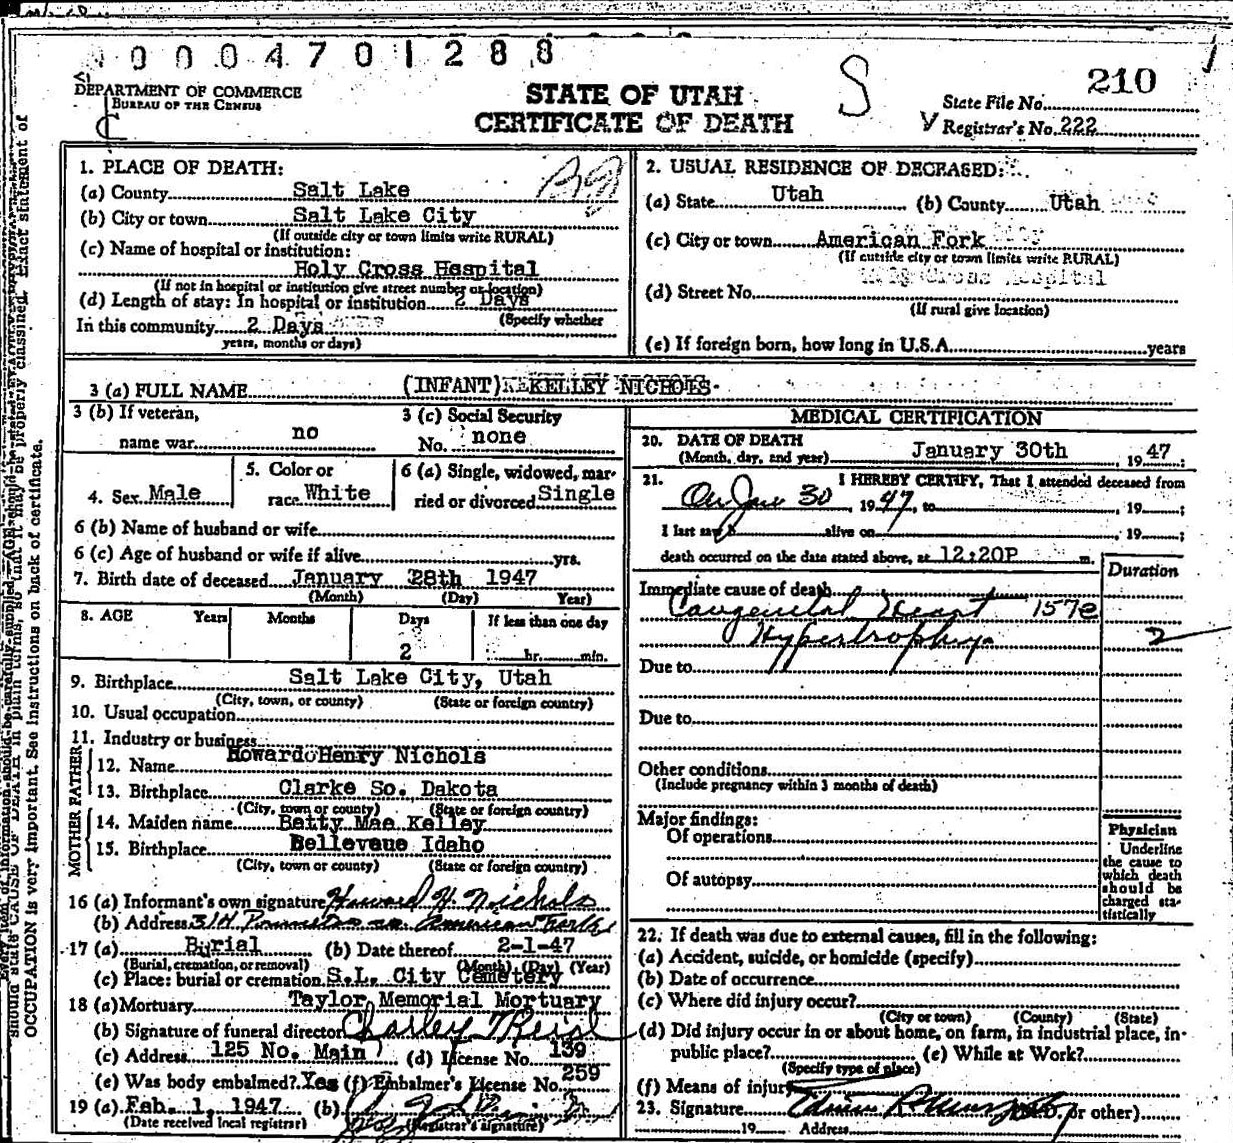 0000 4701288
DEPARTMENT OF COMMERCE
BUREAU OF THE CENSUS
STATE OF UTAH
CERTIFICATE OF DEATH
S
210
State File No.
Registrar's No. 222
1. PLACE OF DEATH:
(a) County Salt Lake
(b) City or town Salt Lake City
(If outside city or town limits write RURAL)
(c) Name of hospital or institution:
Holy Cross Hospital
(If not in hospital or institution give street number or location)
(d) Length of stay: In hospital or institution 2 Days
(Specify whether
In this community 2 Days
years, months or days)
2. USUAL RESIDENCE OF DECEASED:
(a) State Utah (b) County Utah
(c) City or town American Fork
(If outside city or town limits write RURAL)
(d) Street No.
(If rural give location)
(e) If foreign born, how long in U.S.A. years
3 (a) FULL NAME (INFANT) KELLEY NICHOLS
3 (b) If veteran,
name war no
3 (c) Social Security
No. none
4. Sex Male
5. Color or
race White
6 (a) Single, widowed, mar-
ried or divorced Single
6 (b) Name of husband or wife
6 (c) Age of husband or wife if alive yrs.
7. Birth date of deceased January 28th 1947
(Month) (Day) Year)
8. AGE Years Months Days If less than one day
2 hr. min.
9. Birthplace Salt Lake City, Utah
(City, town, or county) (State or foreign country)
10. Usual occupation
11. Industry or business
MOTHER FATHER
12. Name Howard Henry Nichols
13. Birthplace Clarke So. Dakota
(City, town or county) (State or foreign country)
14. Maiden name Betty Mae Kelley
15. Birthplace Bellevue Idaho
(City, town or county) (State or foreign country)
16 (a) Informant's own signature Howard H. Nichols
(b) Address American Fork
17 (a) Burial (b) Date thereof 2-1-47
(Burial, cremation, or removal) (Month) (Day) (Year)
(c) Place: burial or cremation S.L. City Cemetery
18 (a) Mortuary Taylor Memorial Mortuary
(b) Signature of funeral director Charley
(c) Address 125 No. Main (d) License No. 139
(e) Was body embalmed? Yes (f) Embalmer's License No. 259
19 (a) Feb. 1, 1947 (b)
(Date received local registrar) (Registrar's signature)
MEDICAL CERTIFICATION
20. DATE OF DEATH
(Month, day, and year) January 30th 19 47;
21. I HEREBY CERTIFY, That I attended deceased from
On Jan 30, 1947, to , 19 ;
I last saw h alive on , 19 ;
death occurred on the date stated above, at 12:20P m.
Duration
Immediate cause of death
Congenital Heart 157e
Hypertrophy 2
Due to
Due to
Other conditions
(Include pregnancy within 3 months of death)
Major findings:
Of operations
Of autopsy
Physician
Underline
the cause to
which death
should be
charged sta-
tistically
22. If death was due to external causes, fill in the following:
(a) Accident, suicide, or homicide (specify)
(b) Date of occurrence
(c) Where did injury occur?
(City or town) (County) (State)
(d) Did injury occur in or about home, on farm, in industrial place, in-
public place? (e) While at Work?
(Specify type of place)
(f) Means of injury
23. Signature (M.D. or other)
19 Address
should state CAUSE OF DEATH in plain terms, so that it may be properly classified. Exact statement of
OCCUPATION is very important. See instructions on back of certificate.